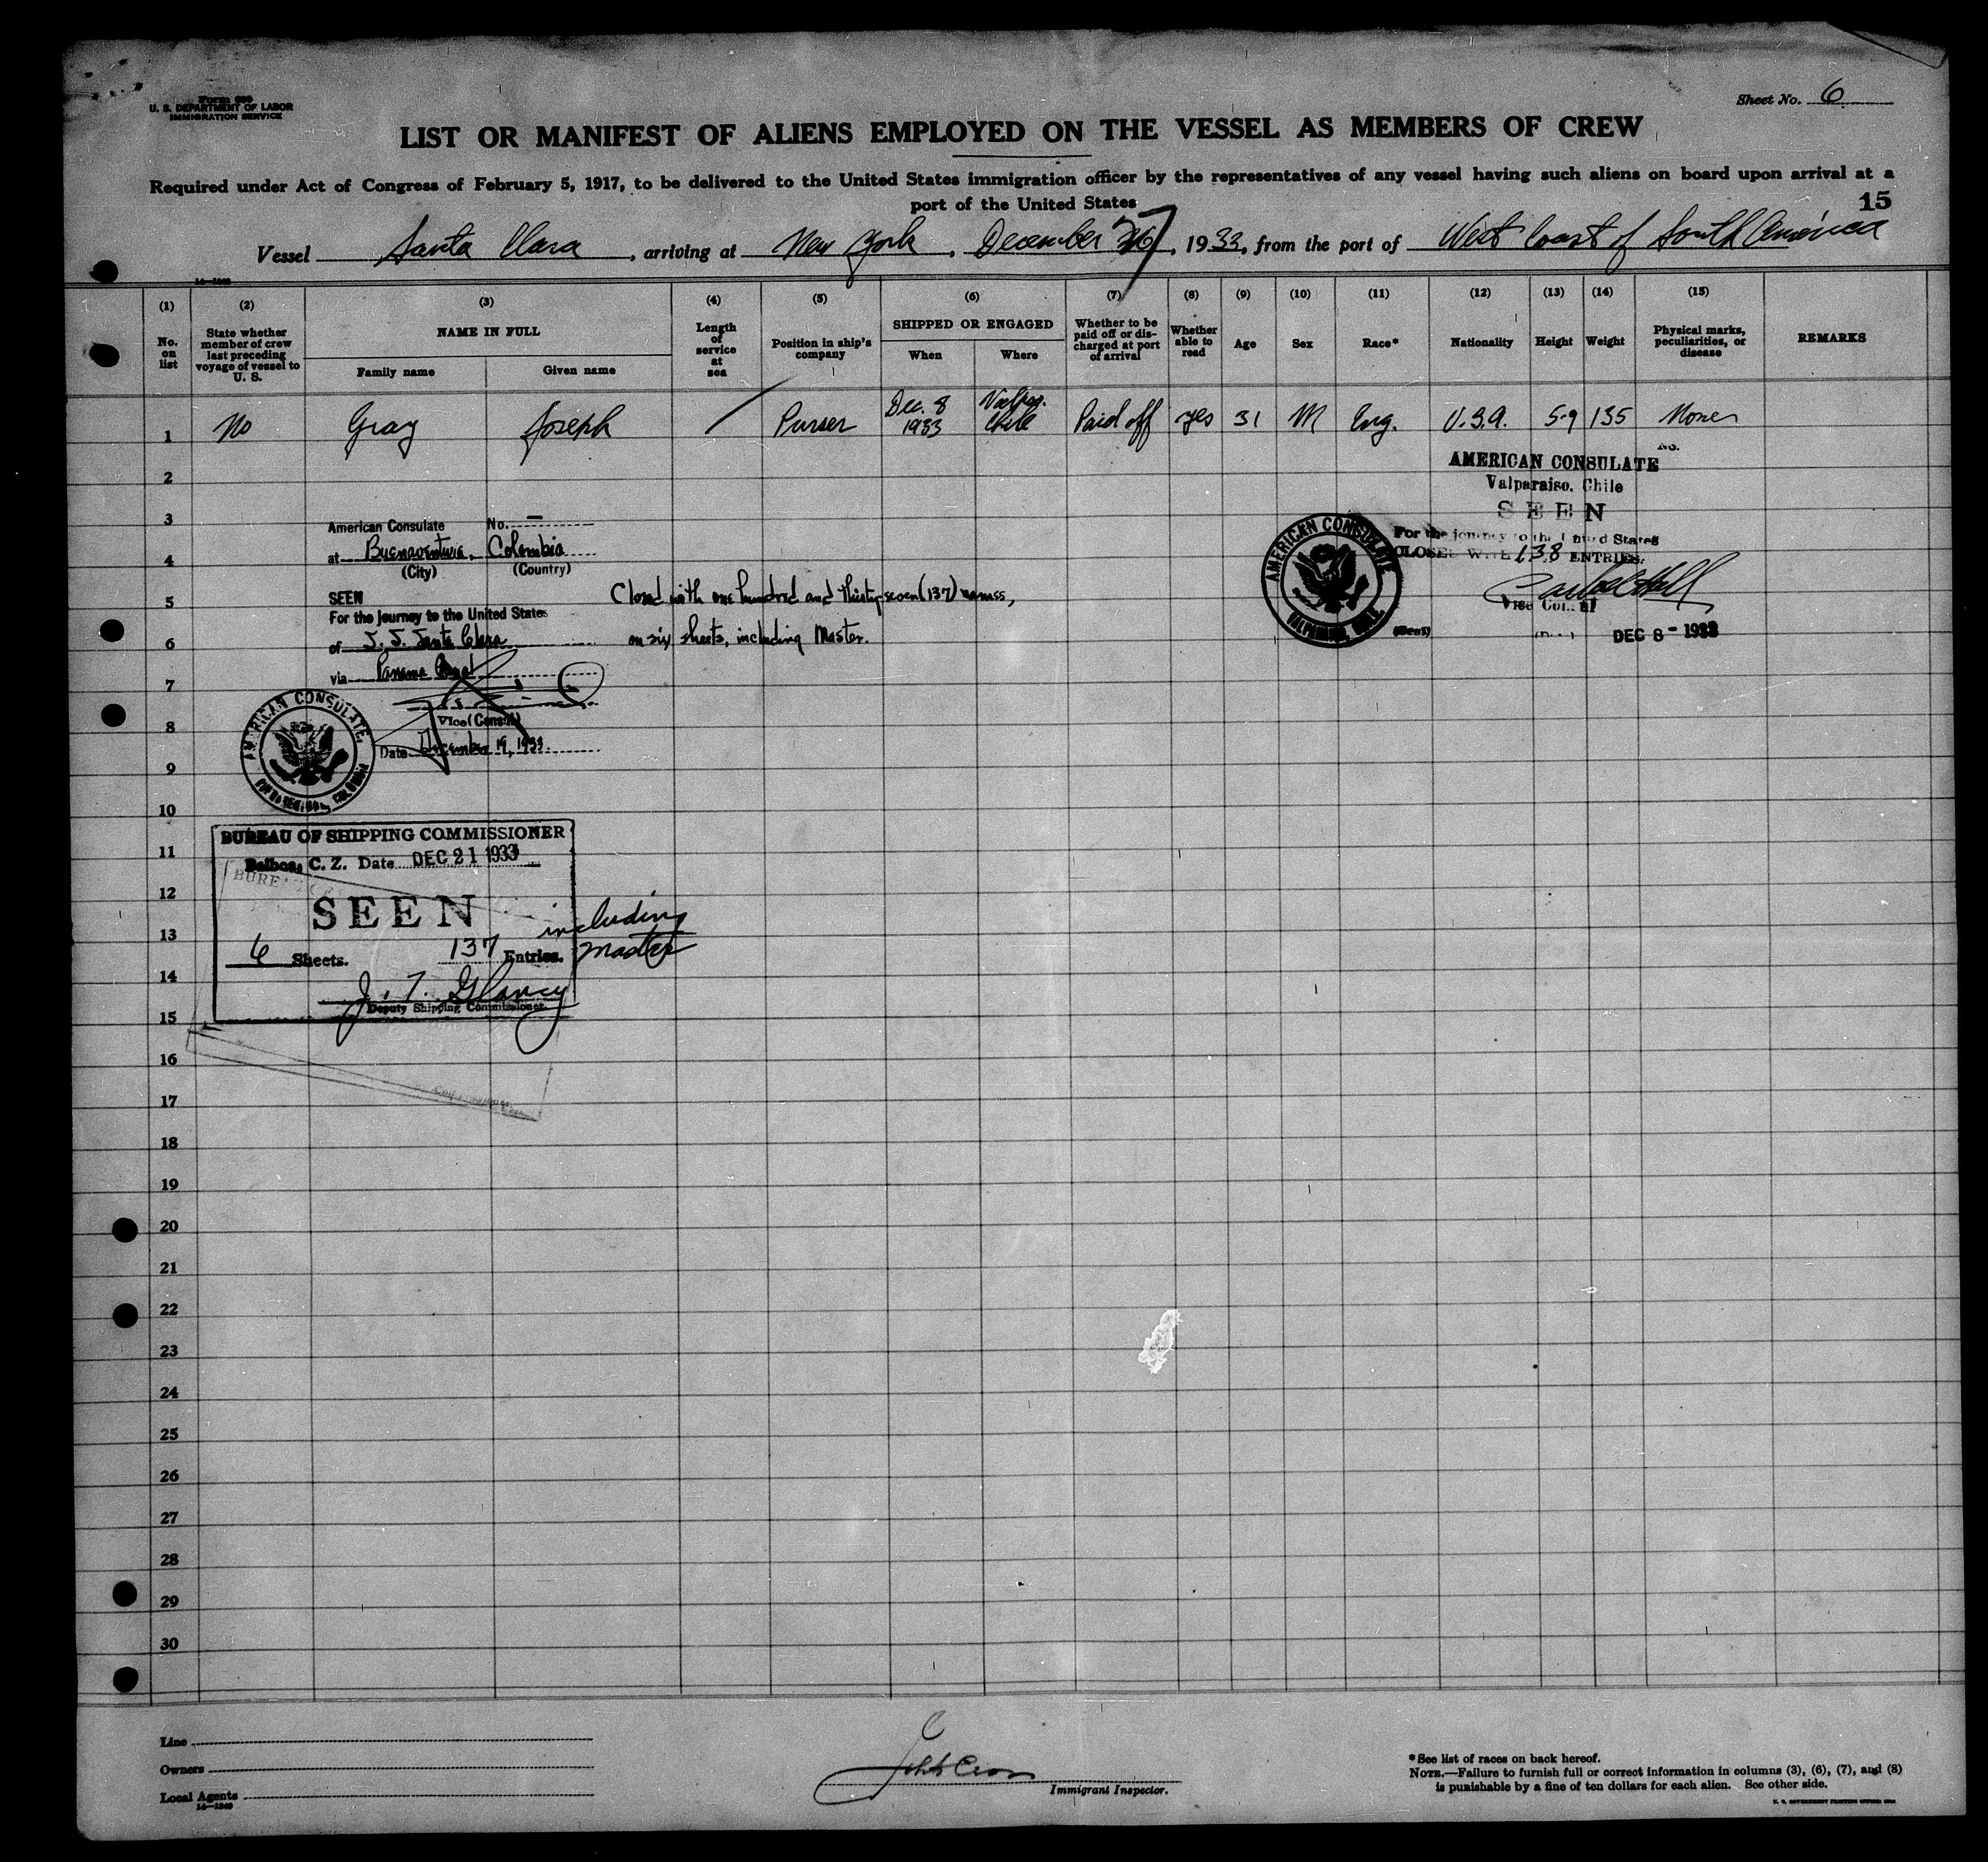 Form 680
U. S. DEPARTMENT OF LABOR
IMMIGRATION SERVICE
Sheet No. 6
LIST OR MANIFEST OF ALIENS EMPLOYED ON THE VESSEL AS MEMBERS OF CREW
Required under Act of Congress of February 5, 1917, to be delivered to the United States immigration officer by the representatives of any vessel having such aliens on board upon arrival at a
port of the United States
15
Vessel Santa Clara, arriving at New York, December 27, 1933, from the port of West Coast of South America
14—1240
(1) (2) (3) (4) (5) (6) (7) (8) (9) (10) (11) (12) (13) (14) (15)
No. on list
State whether member of crew last preceding voyage of vessel to U. S.
NAME IN FULL
Family name
Given name
Length of service at sea
Position in ship's company
SHIPPED OR ENGAGED
When
Where
Whether to be paid off or discharged at port of arrival
Whether able to read
Age
Sex
Race*
Nationality
Height
Weight
Physical marks, peculiarities, or disease
REMARKS
1 No Gray Joseph / Purser Dec. 8 1933 Valpo. Chile Paid off yes 31 M Eng. U.S.A. 5-9 135 None
No.
AMERICAN CONSULATE
Valparaiso, Chile
SEEN
For the journey to the United States
CLOSED WITH 138 ENTRIES.
Vice Consul
(Seal)
(Date) DEC 8 - 1933
AMERICAN CONSULATE
VALPARAISO, CHILE
2
3
4
5
6
7
8
9
10
11
12
13
14
15
16
17
18
19
20
21
22
23
24
25
26
27
28
29
30
American Consulate No. —
at Buenaventura, Colombia
(City) (Country)
SEEN
For the journey to the United States
of S. S. Santa Clara
via Panama Canal
Vice (Consul)
Date December 19, 1933
Closed with one hundred and thirty seven (137) names,
on six sheets, including Master.
AMERICAN CONSULATE,
BUENAVENTURA, COLOMBIA
BUREAU OF SHIPPING COMMISSIONER
Balboa, C. Z. Date DEC 21 1933
SEEN
6 Sheets. 137 Entries. including Master
J. T. Glancy
Deputy Shipping Commissioner.
Line
Owners
Local Agents
14—1240
Immigrant Inspector.
*See list of races on back hereof.
NOTE.—Failure to furnish full or correct information in columns (3), (6), (7), and (8)
is punishable by a fine of ten dollars for each alien. See other side.